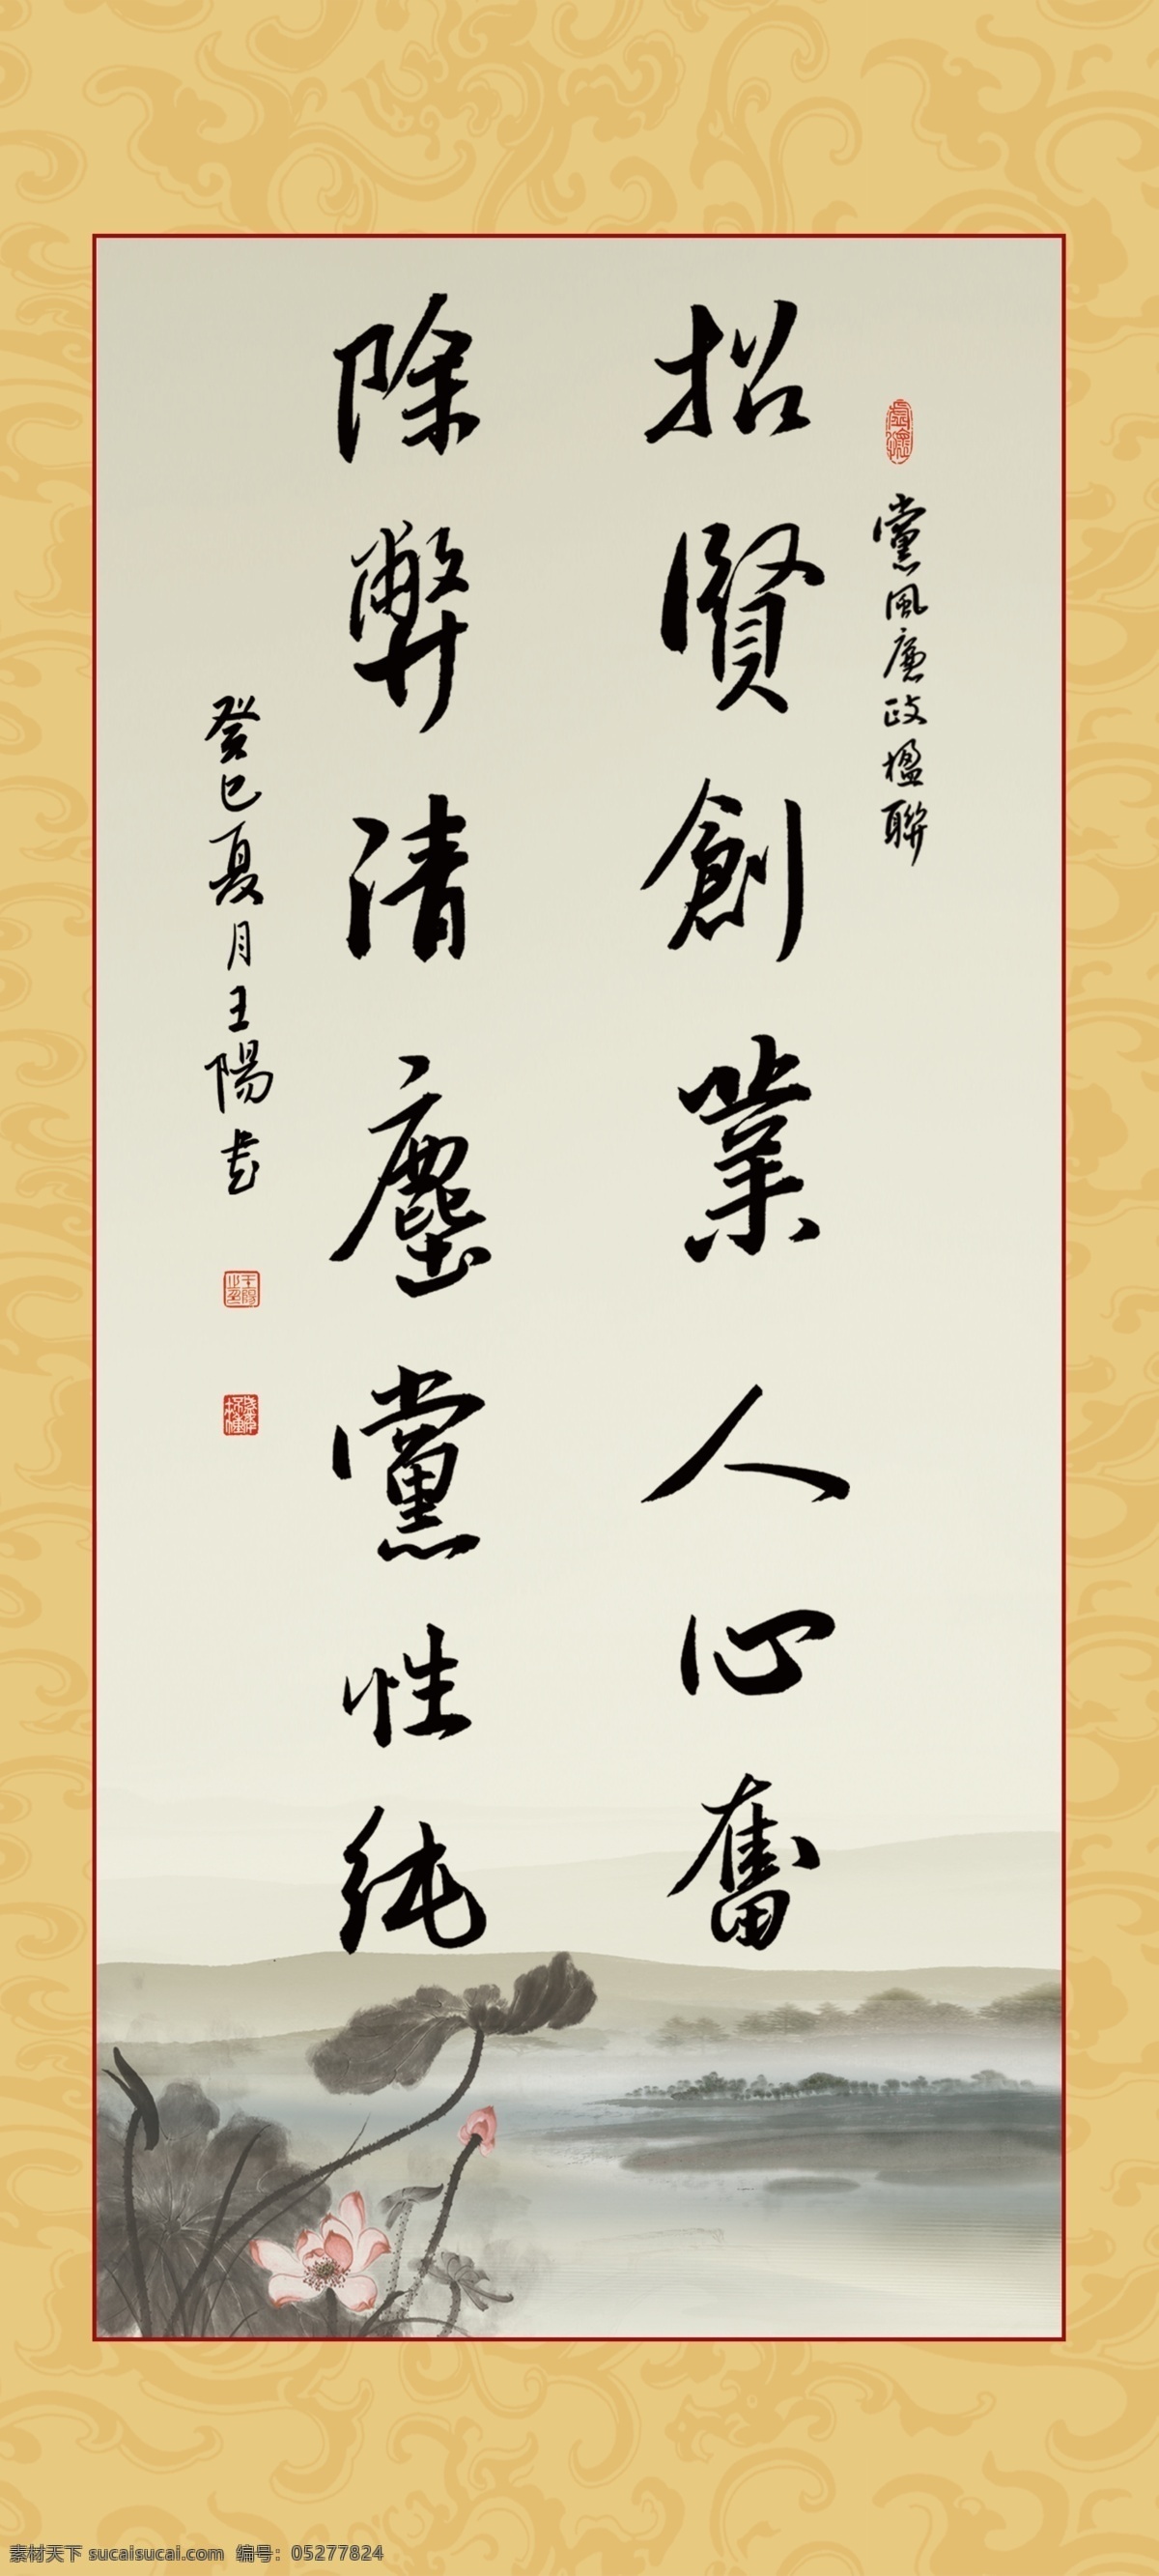 虛懷
黨風廉政楹聯
招賢創業人心奮
除弊清塵黨性純
癸巳夏月王陽书
王陽之印
素材天下 sucaisucai.com 编号：05277824